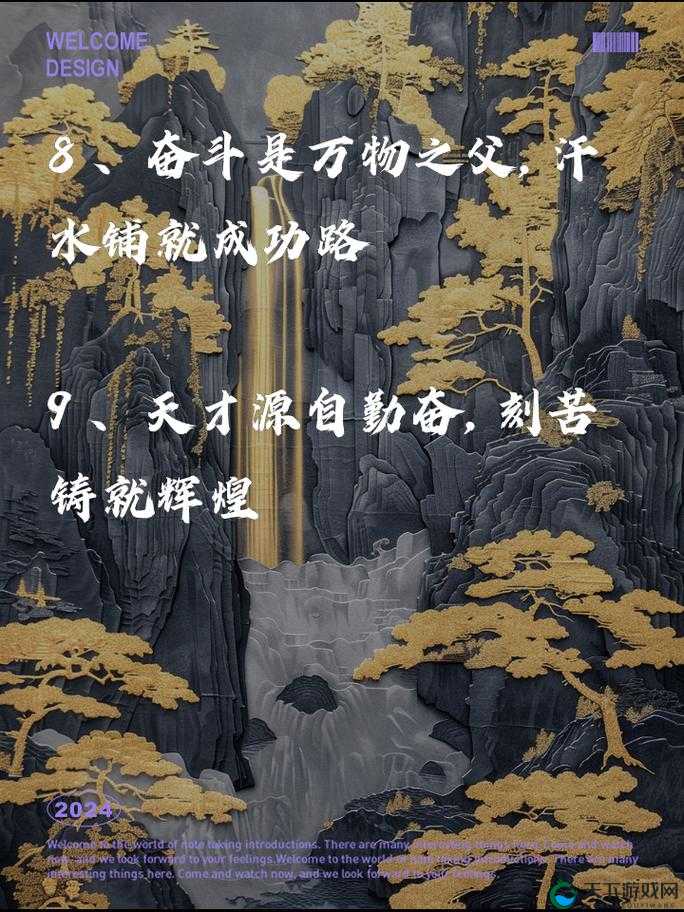 WELCOME
DESIGN
8、奋斗是万物之父，汗
水铺就成功路
9、天才源自勤奋，刻苦
铸就辉煌
2024
Welcome to the world of note taking introductions. There are many interesting things here. Come and watch
now, and we look forward to your feelings.Welcome to the world of note taking introductions. There are many
interesting things here. Come and watch now, and we look forward to your feelings.
天下游戏网